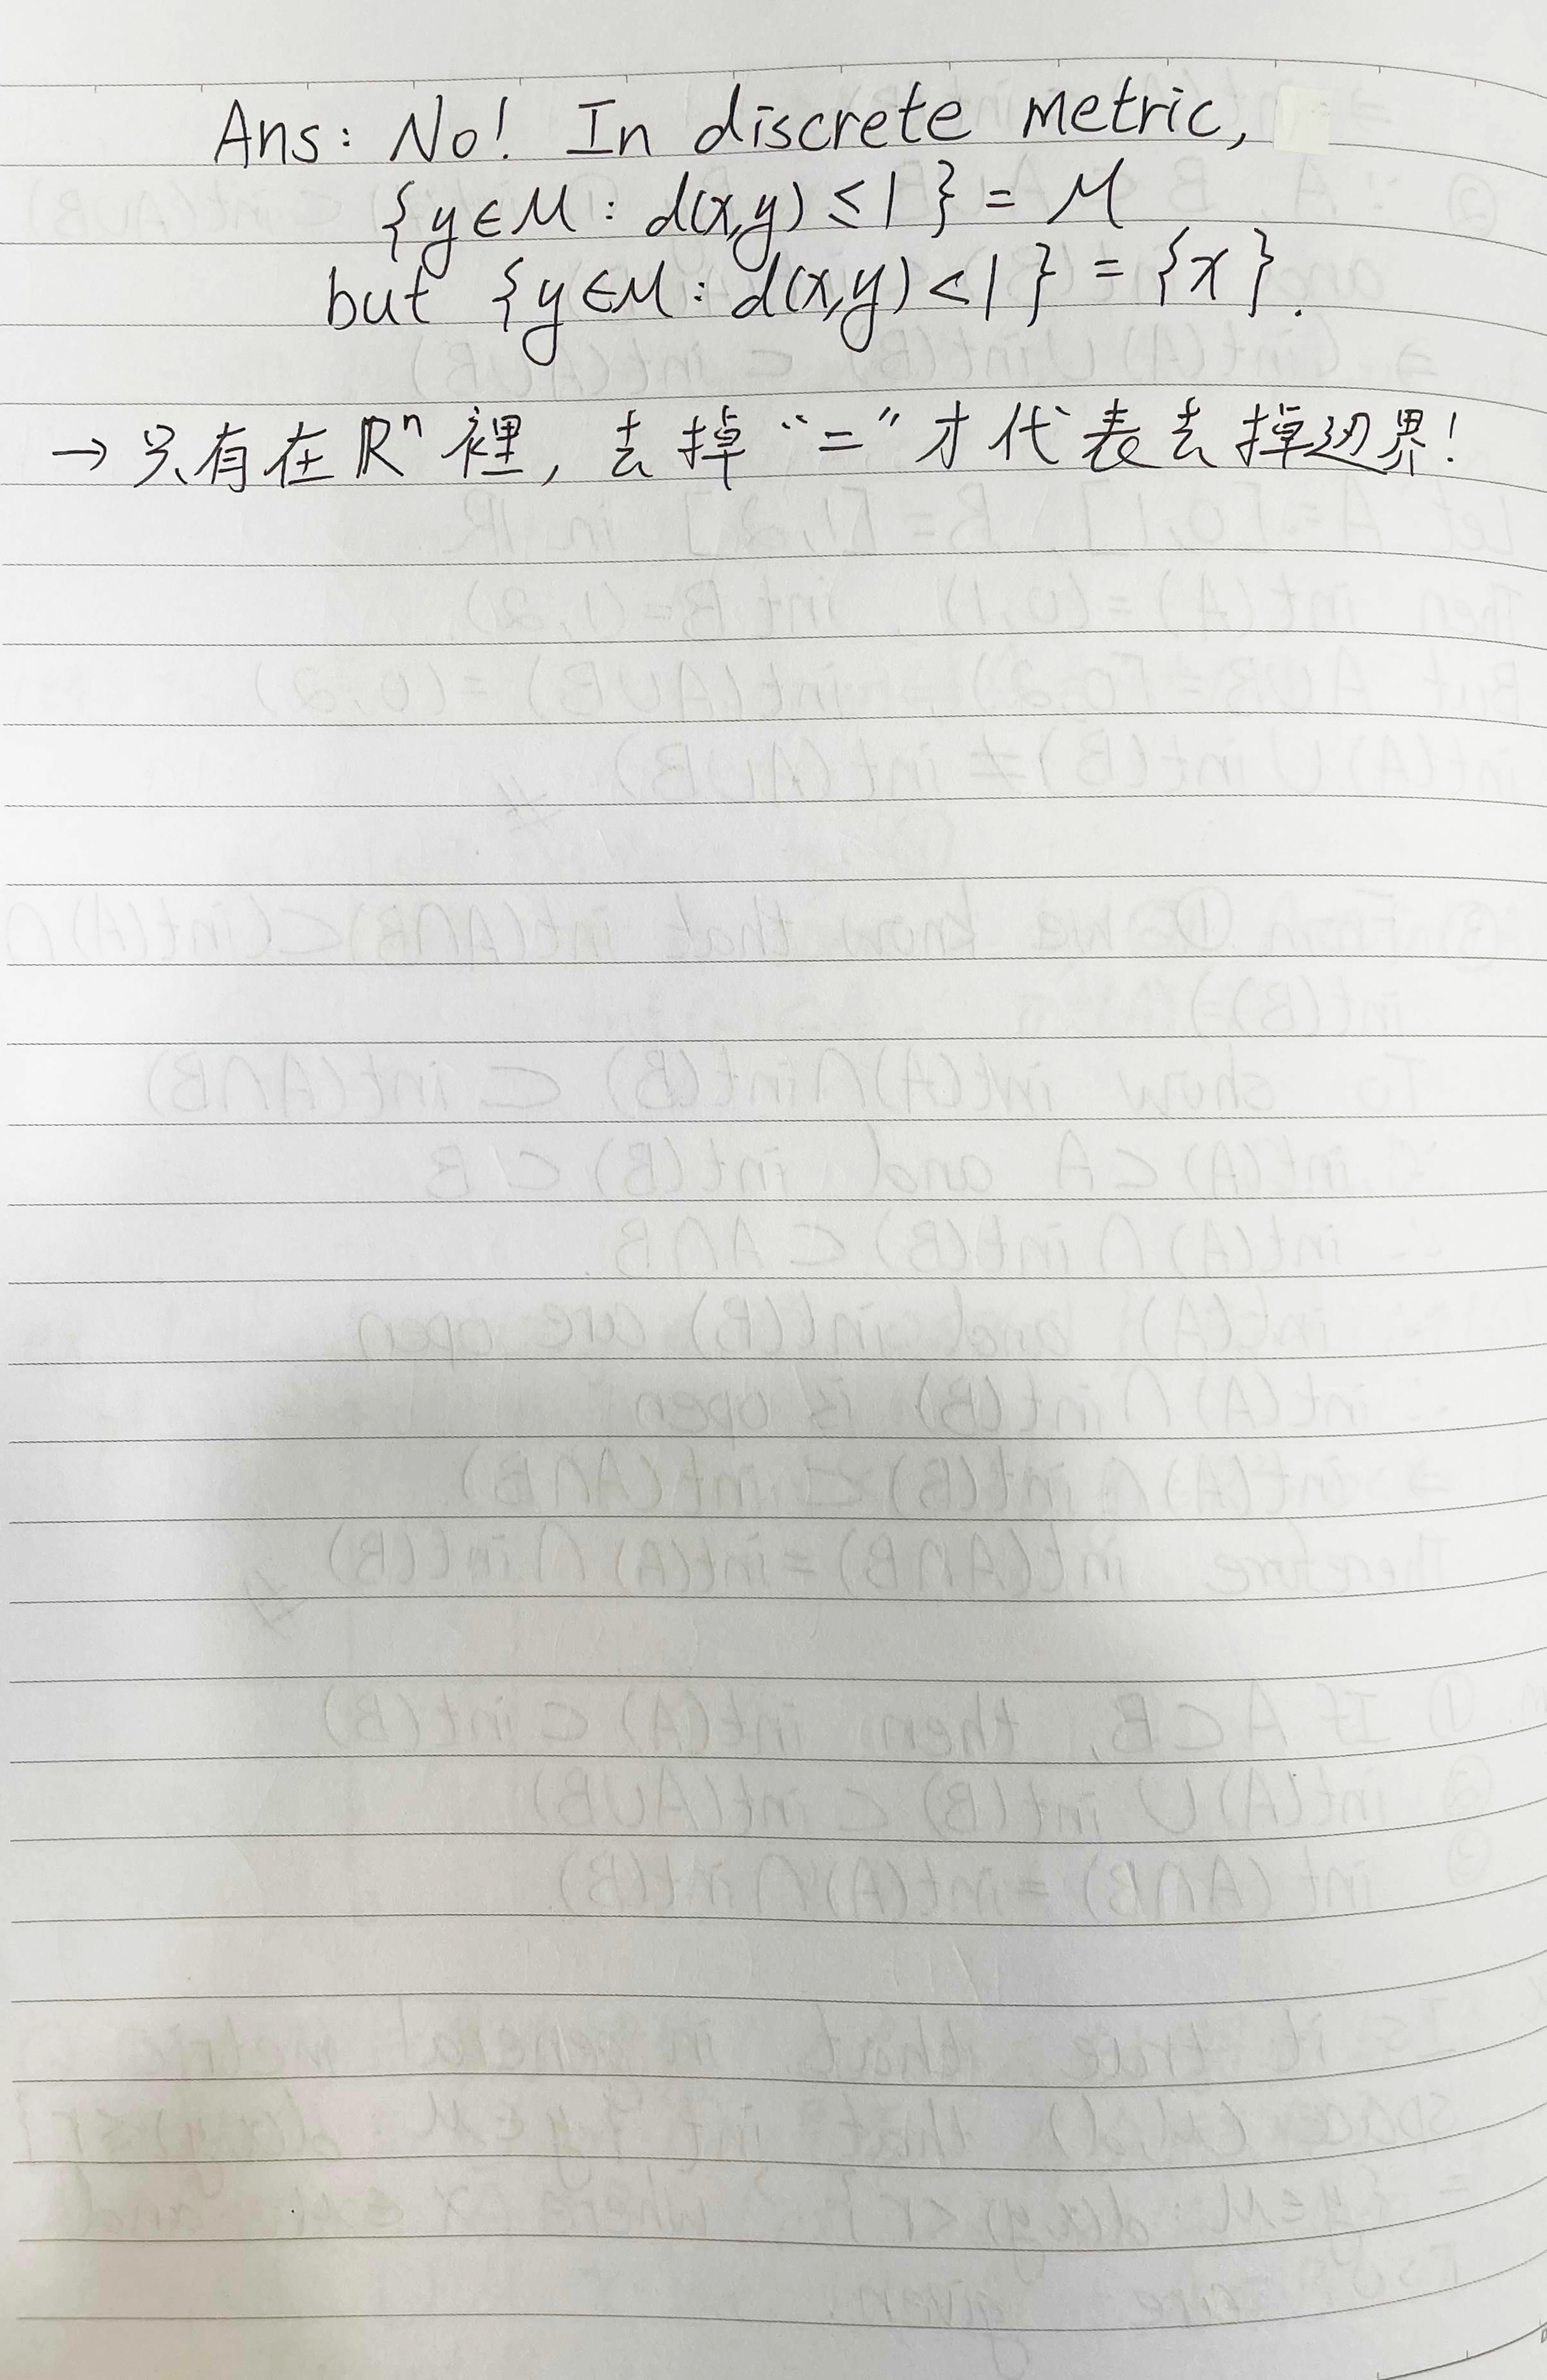 Ans: No! In discrete metric,
{y∈M : d(x,y) ≤ 1} = M
but {y∈M : d(x,y) < 1} = {x}.
→ 只有在 ℝⁿ 裡, 去掉 “=” 才代表去掉边界!